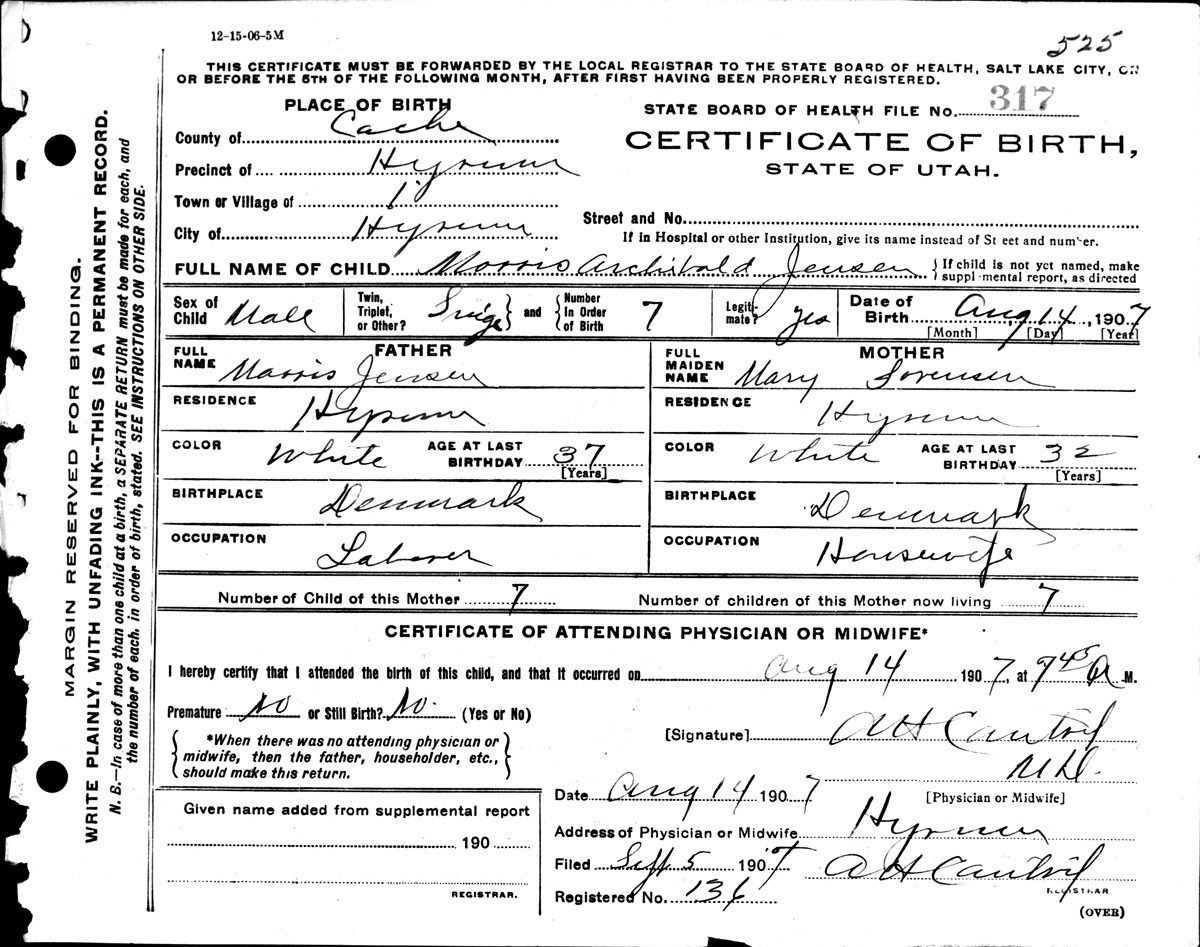 12-15-06-5M
525
THIS CERTIFICATE MUST BE FORWARDED BY THE LOCAL REGISTRAR TO THE STATE BOARD OF HEALTH, SALT LAKE CITY, ON
OR BEFORE THE 5TH OF THE FOLLOWING MONTH, AFTER FIRST HAVING BEEN PROPERLY REGISTERED.
PLACE OF BIRTH
STATE BOARD OF HEALTH FILE No. 317
County of Cache
CERTIFICATE OF BIRTH,
STATE OF UTAH.
Precinct of Hyrum
Town or Village of
City of Hyrum
Street and No.
If in Hospital or other Institution, give its name instead of Street and number.
FULL NAME OF CHILD Morris Archibald Jensen { If child is not yet named, make
supplemental report, as directed
Sex of Child Male
Twin, Triplet, or Other? } and { Number In Order of Birth 7
Legiti-mate? yes
Date of Birth Aug 14, 1907
[Month] [Day] [Year]
FATHER
FULL NAME Morris Jensen
RESIDENCE Hyrum
COLOR White AGE AT LAST BIRTHDAY 37
[Years]
BIRTHPLACE Denmark
OCCUPATION Laborer
MOTHER
FULL MAIDEN NAME Mary Sorensen
RESIDENCE Hyrum
COLOR White AGE AT LAST BIRTHDAY 32
[Years]
BIRTHPLACE Denmark
OCCUPATION Housewife
Number of Child of this Mother 7 Number of children of this Mother now living 7
CERTIFICATE OF ATTENDING PHYSICIAN OR MIDWIFE*
I hereby certify that I attended the birth of this child, and that it occurred on Aug 14 1907, at 7 45 A M.
Premature No or Still Birth? No. (Yes or No)
{ *When there was no attending physician or
midwife, then the father, householder, etc.,
should make this return. }
[Signature] AH Cantril
M.D.
[Physician or Midwife]
Date Aug 14 1907
Address of Physician or Midwife Hyrum
Filed Sept 5 1907 AH Cantril
REGISTRAR
Registered No. 136
(OVER)
Given name added from supplemental report
190
REGISTRAR.
MARGIN RESERVED FOR BINDING.
WRITE PLAINLY, WITH UNFADING INK--THIS IS A PERMANENT RECORD.
N. B.—In case of more than one child at a birth, a SEPARATE RETURN must be made for each, and
the number of each, in order of birth, stated. SEE INSTRUCTIONS ON OTHER SIDE.